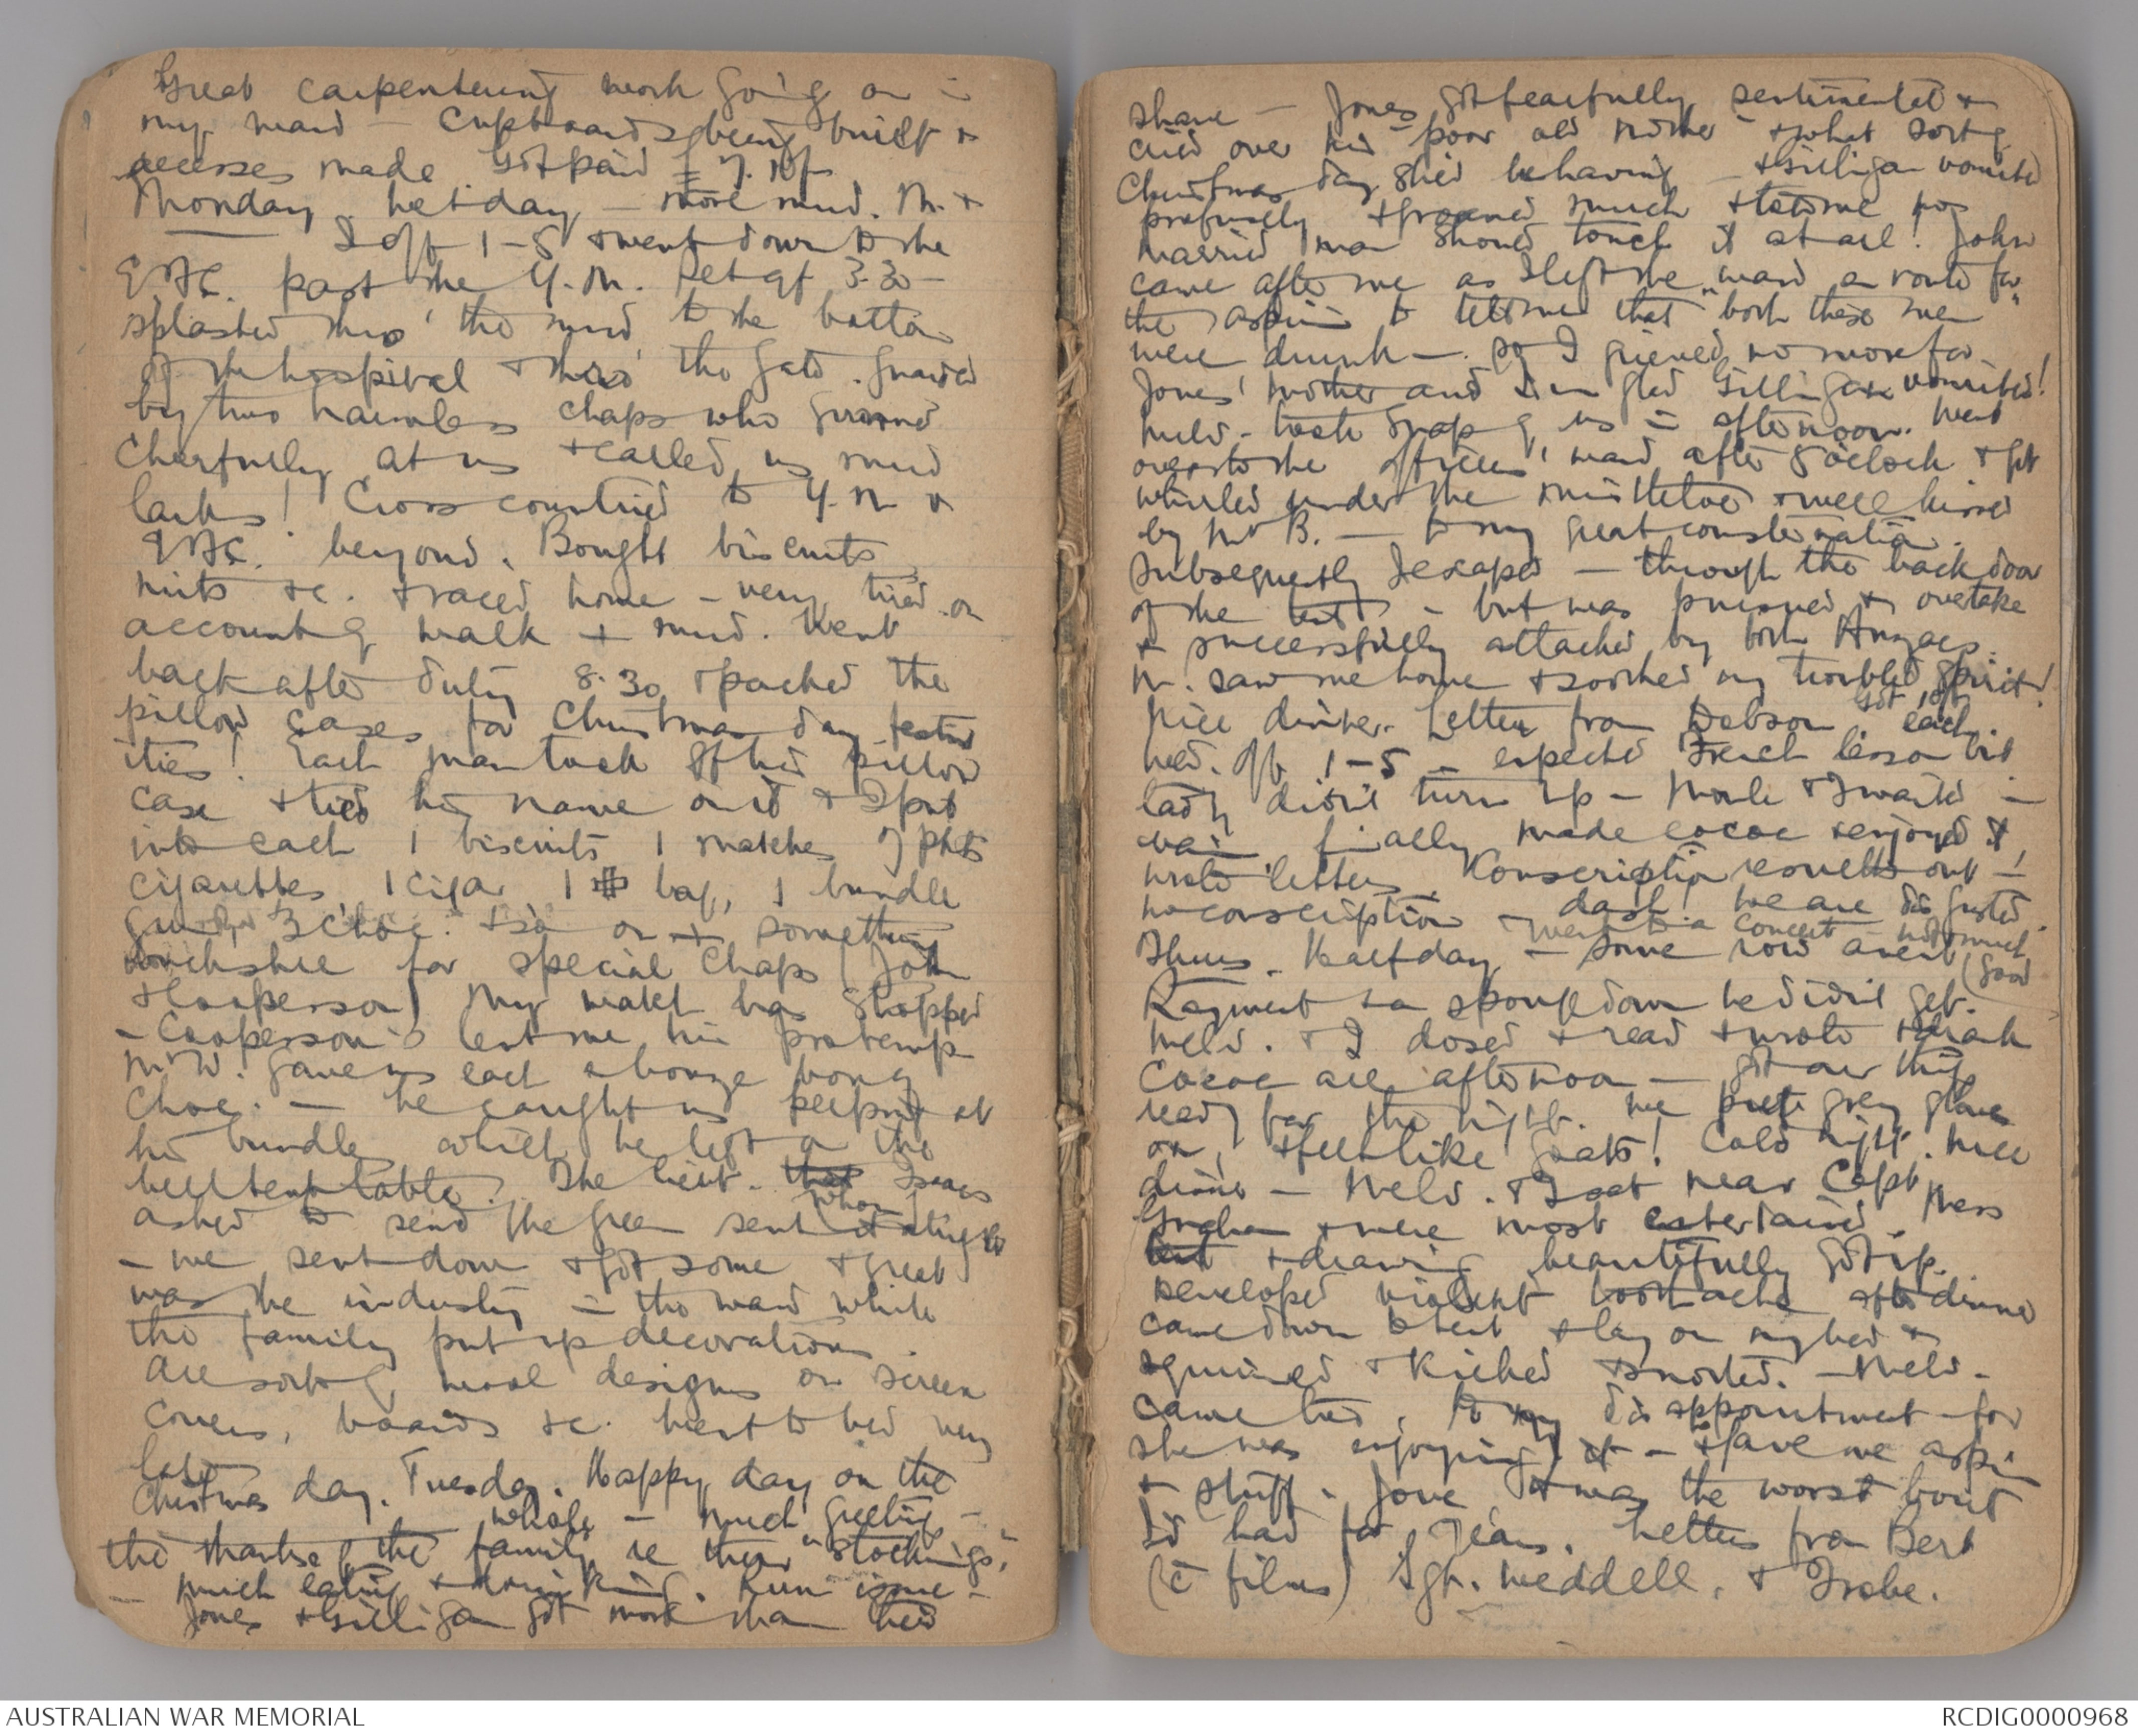 Great carpentering work going on in
my ward - Cupboards being built &
recesses made Got paid £7.10/-
Monday hef day - more mud. M. &
I off 1-5 & went down to the
EFC. past the Y.M. Set off 3.30 -
splashed thro' the mud to the bottom
of the hospital & thro' the gate. guarded
by two harmless chaps who grinned
cheerfully at us & called us mud
larks! Cross countried to Y.M &
EFC. beyond. Bought biscuits
nuts &c. & raced home - very tired on
account of walk & mud. Went
back after duty 8.30 & packed the
pillow cases for Christmas day festiv
ities! Each man took off his pillow
case & tied his name on it & I put
into each 1 biscuits 1 matches 2 pkts
cigarettes, 1 cigar 1 bag, 1 bundle
gum 3 choc. & so on & something
for special chaps (John
& Cooperson) My watch has stopped
- Cooperson's lent me his protemp
Mr W. gave us each a bonze bong
choc. - he caught us peeping at
his bundles which he left on the
bell tent table. The lieut. Isaacs
asked to send the green sent
whom
- we sent down & got some & great
was the industry in the ward while
the family put up decorations.
All sorts of wool designs on screen
covers, boards &c. Went to bed very
late
Christmas day. Tuesday. Happy day on the
whole - Much greeting -
the thanks of the family re their "stockings".
- much eating & drinking. Rum issue -
Jones & Gilligan got more than their
share - Jones got fearfully sentimental &
cried over his "poor old mother" & what sort of
Christmas day she'd be having - & Gilligan vomited
profusely & groaned much & told me no
married man should touch it at all! John
came after me as I left the ward en route for
the "aspirin" to tell me that both these men
were drunk -. So I grieved no more for
Jones' mother and I'm glad Gilligan vomited!
Meld. took snap of us in afternoon. Went
over to the officers' ward after 8 o'clock & got
whirled under the mistletoe & well kissed
by Mr B. - to my great consternation.
Subsequently I escaped - through the back door
of the tent - but was pursued & overtake
& successfully attacked by both Anzacs.
M. saw me home & soothed my troubled spirit!
Nice dinner. Letter from Dobson Got gift each
Wed. Off 1-5 - expected French lesson but
lady didn't turn up - Merle & I waited in
vain finally made cocoa & enjoyed it,
wrote letters. Konscription results out -!
no conscription dash! We are disgusted.
& went to a concert - not much
good
Thurs. Half day - Some row anent
Rayment & a sponge down he didn't get.
Meld. & I dosed & read & wrote & drank
cocoa all afternoon - got our things
ready for the night. We put grey gloves
on, & felt like goats! Cold night. Nice
dinner - Meld. & I sat near Capt
Graham & were most entertained. Mess
& drawing beautifully got up.
Developed violent toothache after dinner
came down to tent & lay on my bed &
squirmed & kicked & snorted. - Meld.
came too, to my disappointment for
she was enjoying it - & gave me aspirin
& stuff. Jove it was the worst bout
I'd had for years. Letters from Bert
(c films) Sgt. Weddell, & Frobe.
AUSTRALIAN WAR MEMORIAL
RCDIG0000968